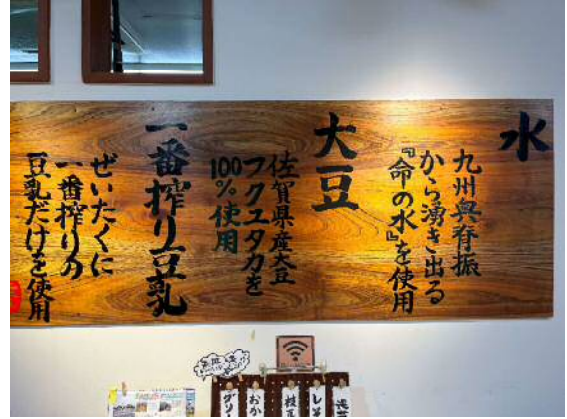 水
九州奥脊振
から湧き出る
『命の水』を使用
大豆
佐賀県産大豆
フクユタカを
100%使用
一番搾り豆乳
ぜいたくに
一番搾りの
豆乳だけを使用